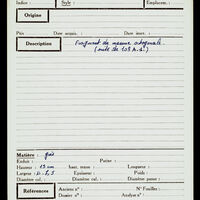 Indice : Style : Emplacem. :
Origine
Prix Date acquis. Date inser. :
Description Fragment de mesure octogonale
(suite de 103 A.2)
Matière :
Enduit : Patine :
Hauteur : 13 cm haut. masse : Longueur :
Largeur : haut. : Poids :
Diamètre cal. : Diamètre panse :
Références Anciens n° : N° Fouilles :
Dossier n° : Analyse n° :